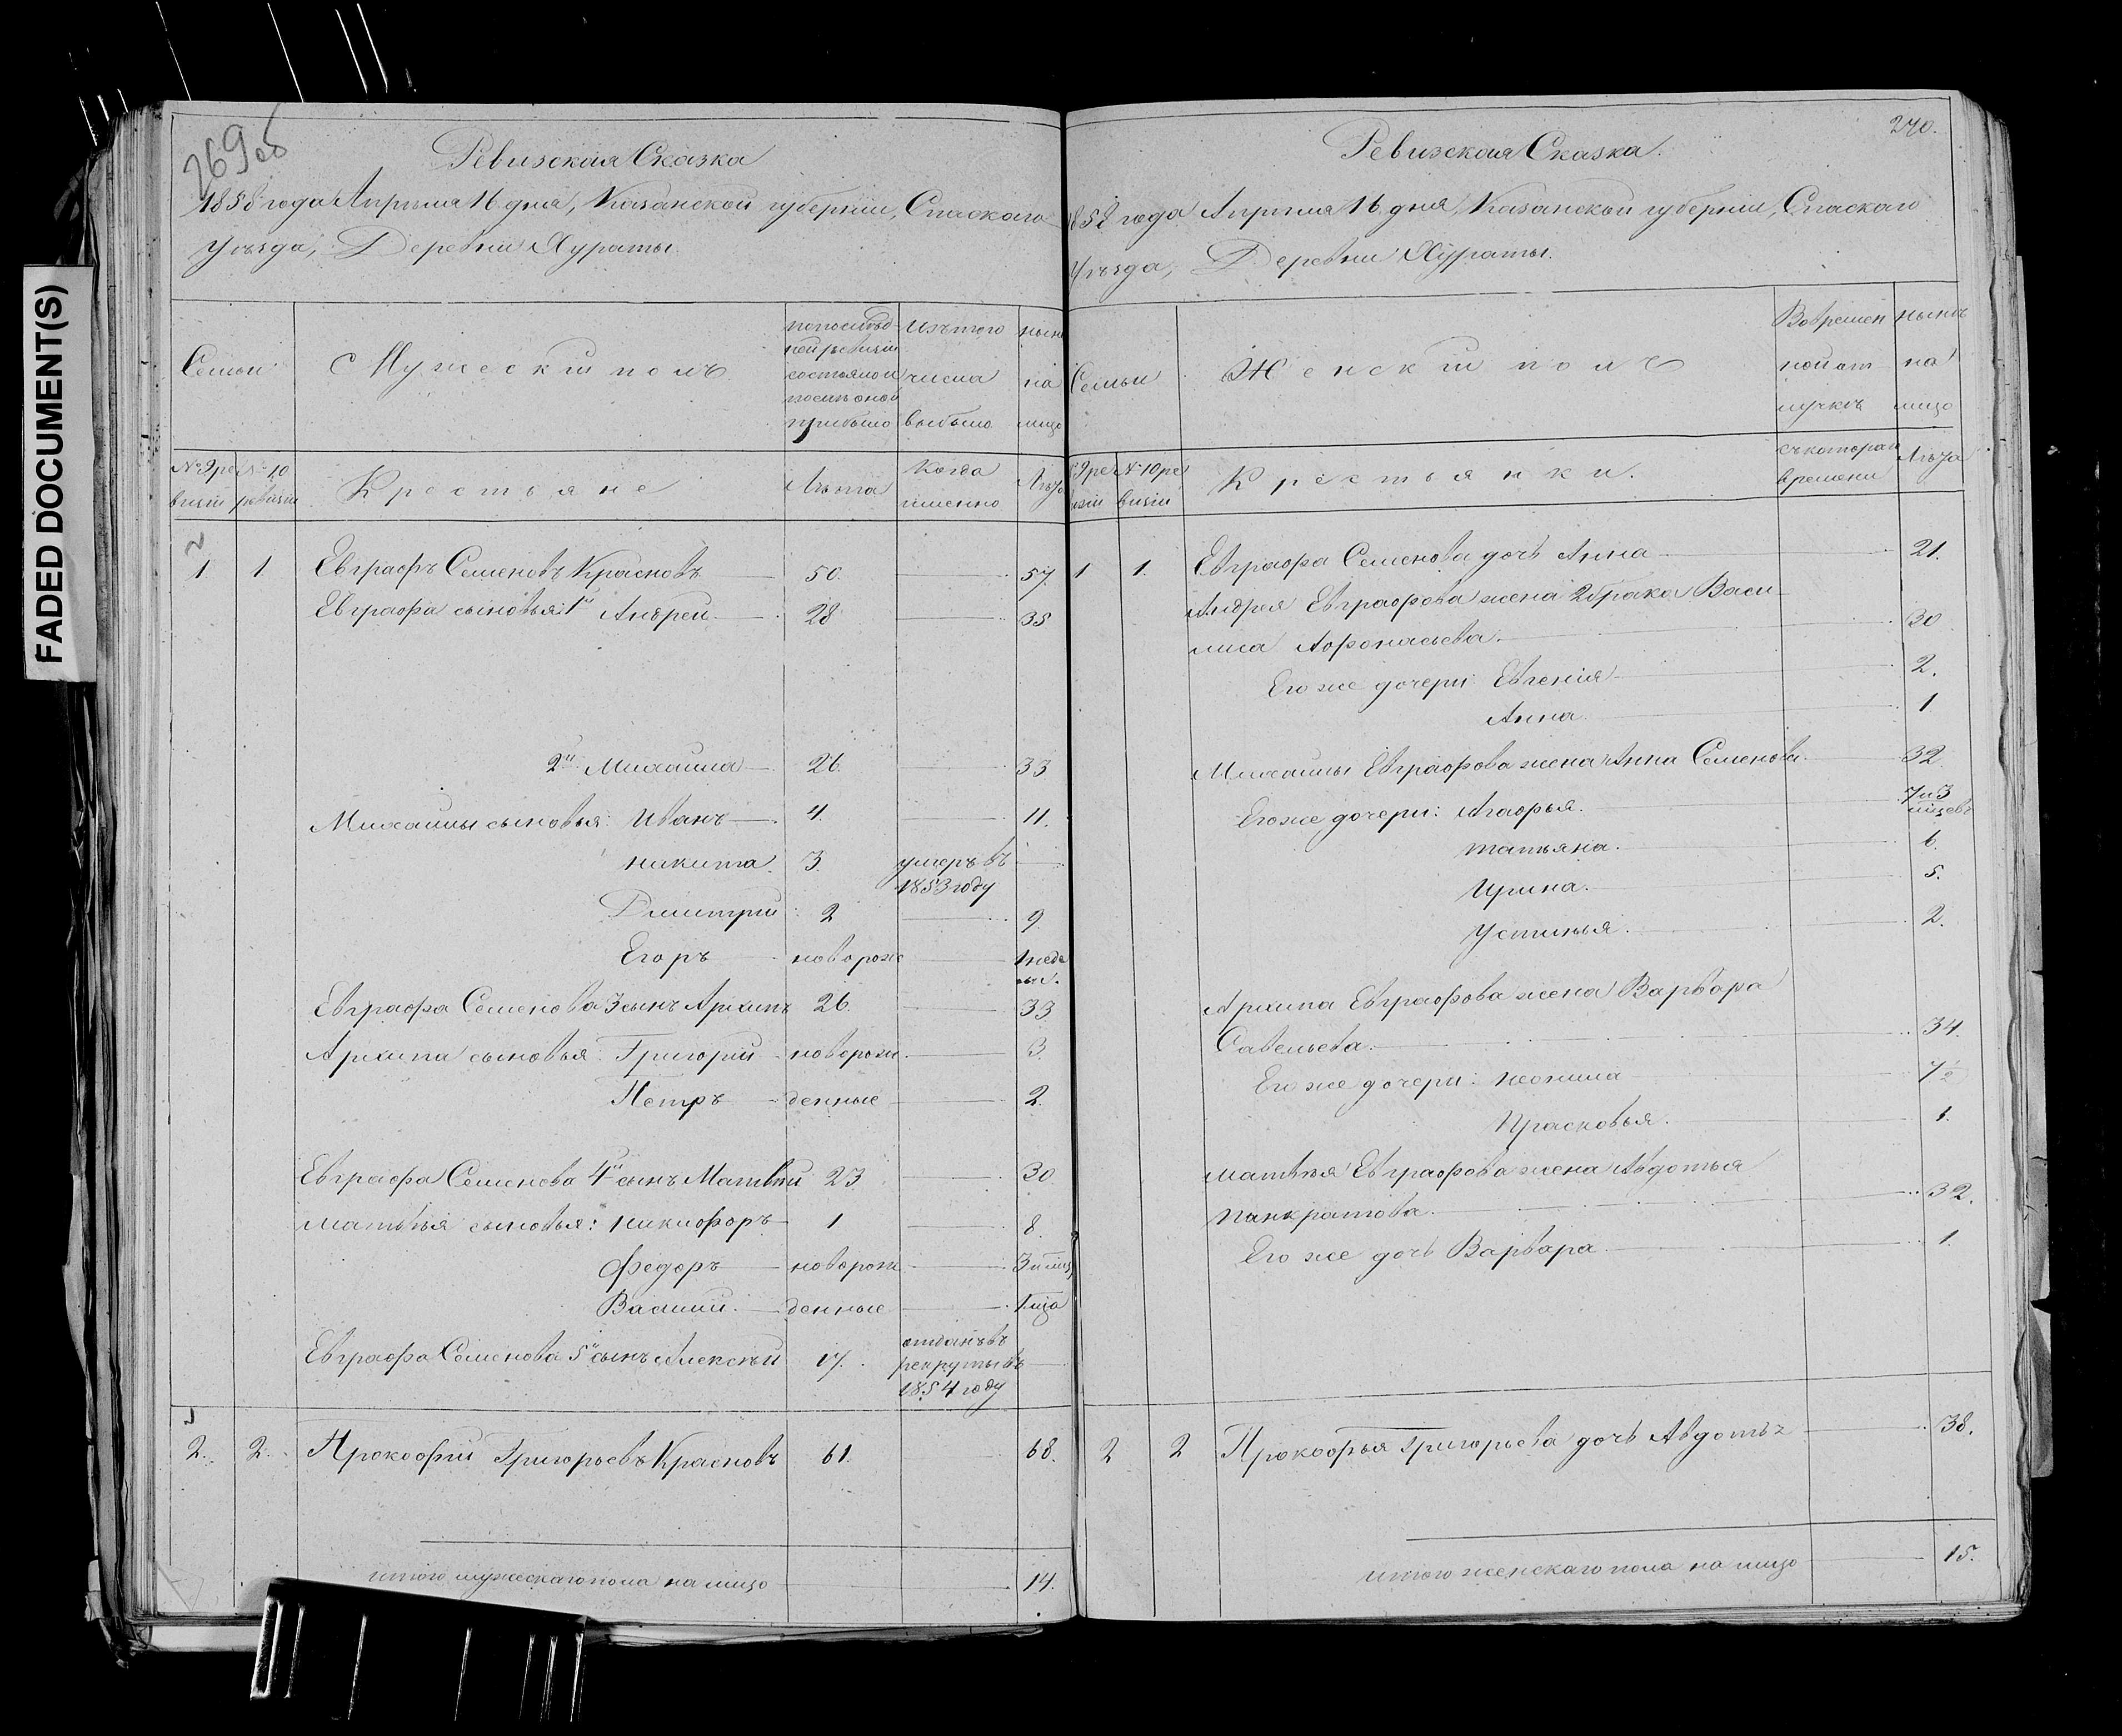 FADED DOCUMENT(S)
269об
Ревизская Сказка
1858 года Апреля 16 дня, Казанской губернии, Спаскаго
Уѣзда, Деревни Хураты.
Семьи
Мужеский полъ
по послѣд-
ней ревизіи
состояло и
послѣ оной
прибыло
Изъ того
числа
выбыло
нынѣ
на
лицо
№ 9 ре
визіи
№ 10
ревизіи
Крестьяне
Лѣта
Когда
именно
Лѣта
1 1. Евграфъ Семеновъ Красновъ 50. 57.
Евграфа сыновья: 1й Андрей 28 35
2й Михаила 26. 33
Михаилы сыновья: Иванъ 4. 11.
Никита 3. умеръ въ
1853 году
Дмитрий 2 9.
Егоръ новорож 1 неде
ли.
Евграфа Семенова 3 сынъ Архипъ 26. 33
Архипа сыновья: Григорий новорож 3.
Петръ денные 2.
Евграфа Семенова 4й сынъ Матвѣй 23 30
Матвѣя сыновья: Никифоръ 1 8.
Федоръ новорож
Василий денные 1 мца
Евграфа Семенова 5й сынъ Алексѣй 17. отданъ въ
рекруты въ
1854 году
2. 2. Прокофий Григорьевъ Красновъ 61. 68.
итого мужескаго пола на лицо 14.
270.
Ревизская Сказка.
1858 года Апреля 16 дня, Казанской губернии, Спаскаго
Уѣзда, Деревни Хураты.
Семьи
Женский полъ
Во времен
ной от
лучкѣ
нынѣ
на
лицо
№ 9 ре
визіи
№ 10 ре
визіи
Крестьянки.
съ котораго
времени
Лѣта
1 1. Евграфа Семенова дочь Анна 21.
Андрея Евграфова жена 2 брака Васи
лиса Афонасьева. 30
Его же дочери: Евгения 2.
Анна. 1
Михаилы Евграфова жена Анна Семенова. 32
Его же дочери: Агафья. 7 и 3
мѣсѣв
Татьяна. 6.
Ирина. 5.
Устинья. 2.
Архипа Евграфова жена Варвара
Савельева. 34.
Его же дочери: Неонила 7½
Прасковья. 1.
Матвѣя Евграфова жена Авдотья
Панкратова. 32.
Его же дочь Варвара. 1
2 2 Прокофья Григорьева дочь Авдотья 38.
итого женскаго пола на лицо 15.